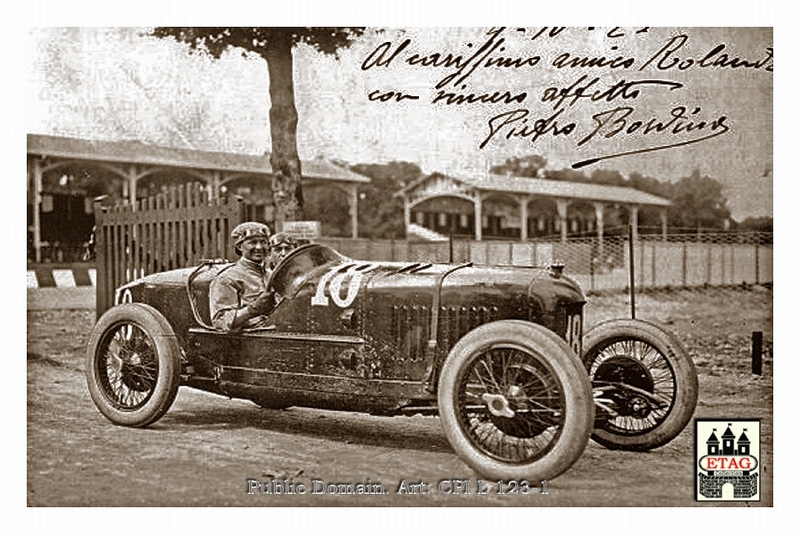 Al carissimo amico Rolando
con sincero affetto
Pietro Bordino
10
18
ETAG
Public Domain. Art: CPI L 123-1